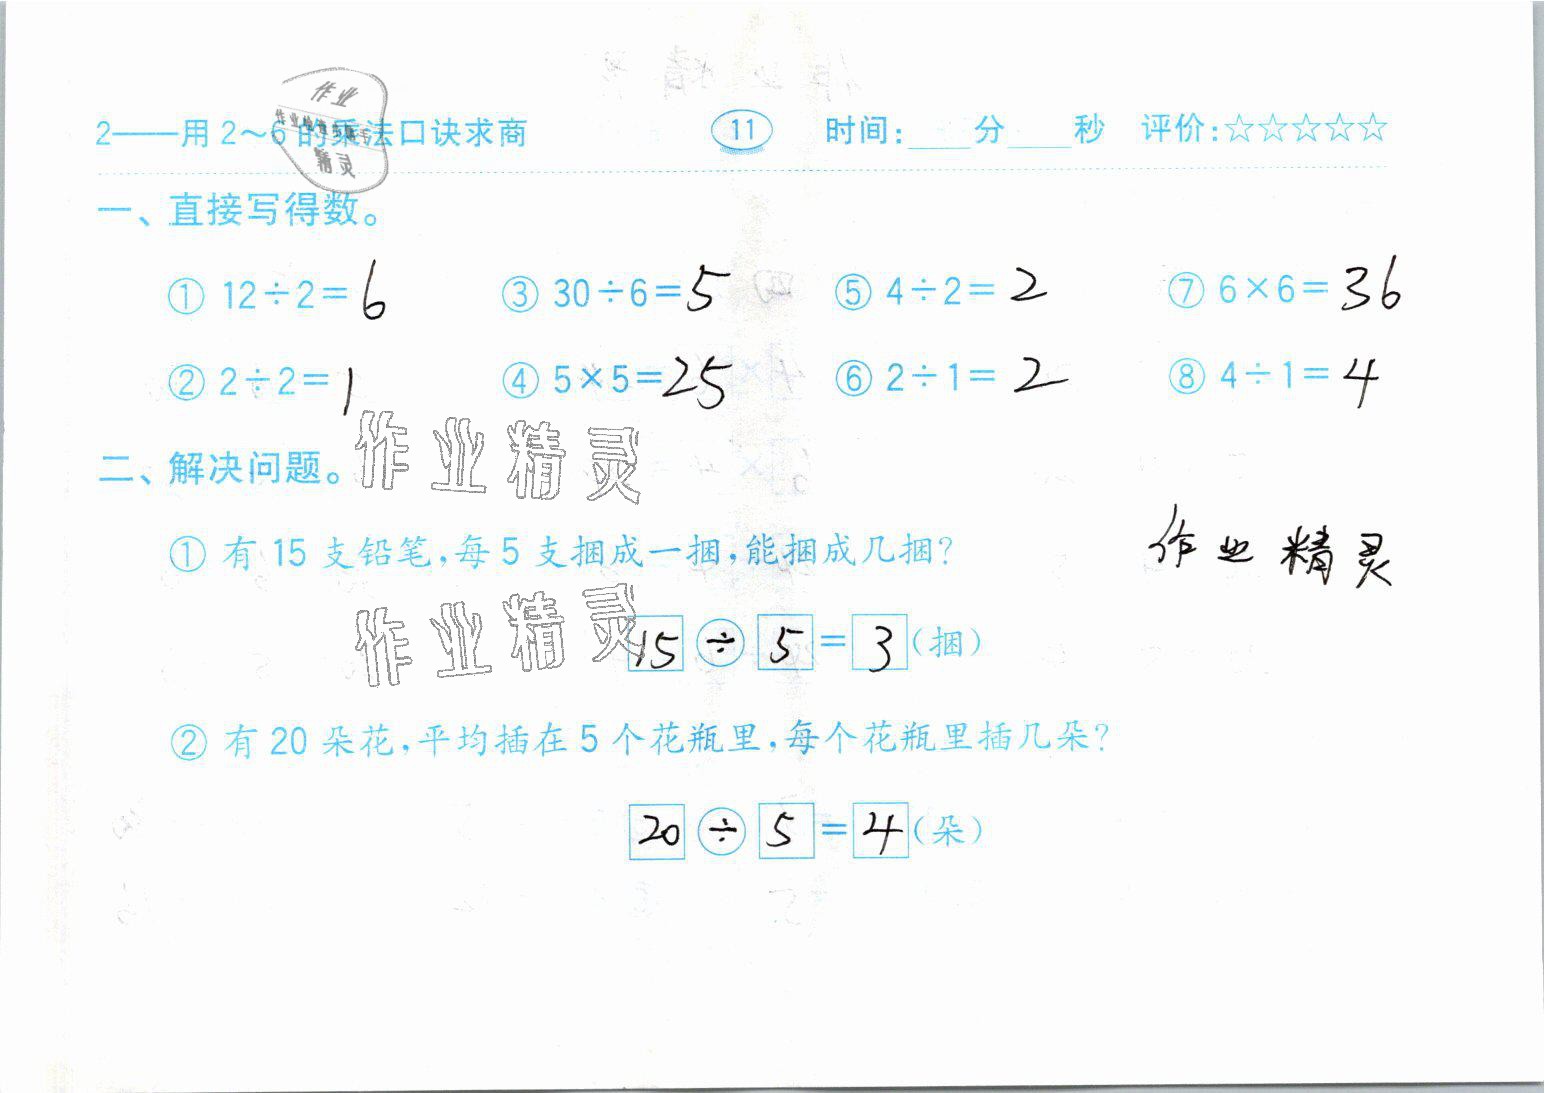 2——用2～6的乘法口诀求商 11 时间:____分____秒 评价:☆☆☆☆☆
作业
精灵
一、直接写得数。
① 12÷2=6 ③ 30÷6=5 ⑤ 4÷2=2 ⑦ 6×6=36
② 2÷2=1 ④ 5×5=25 ⑥ 2÷1=2 ⑧ 4÷1=4
作业精灵
二、解决问题。
① 有15支铅笔,每5支捆成一捆,能捆成几捆?
作业精灵
作业精灵
15÷5=3(捆)
② 有20朵花,平均插在5个花瓶里,每个花瓶里插几朵?
20÷5=4(朵)